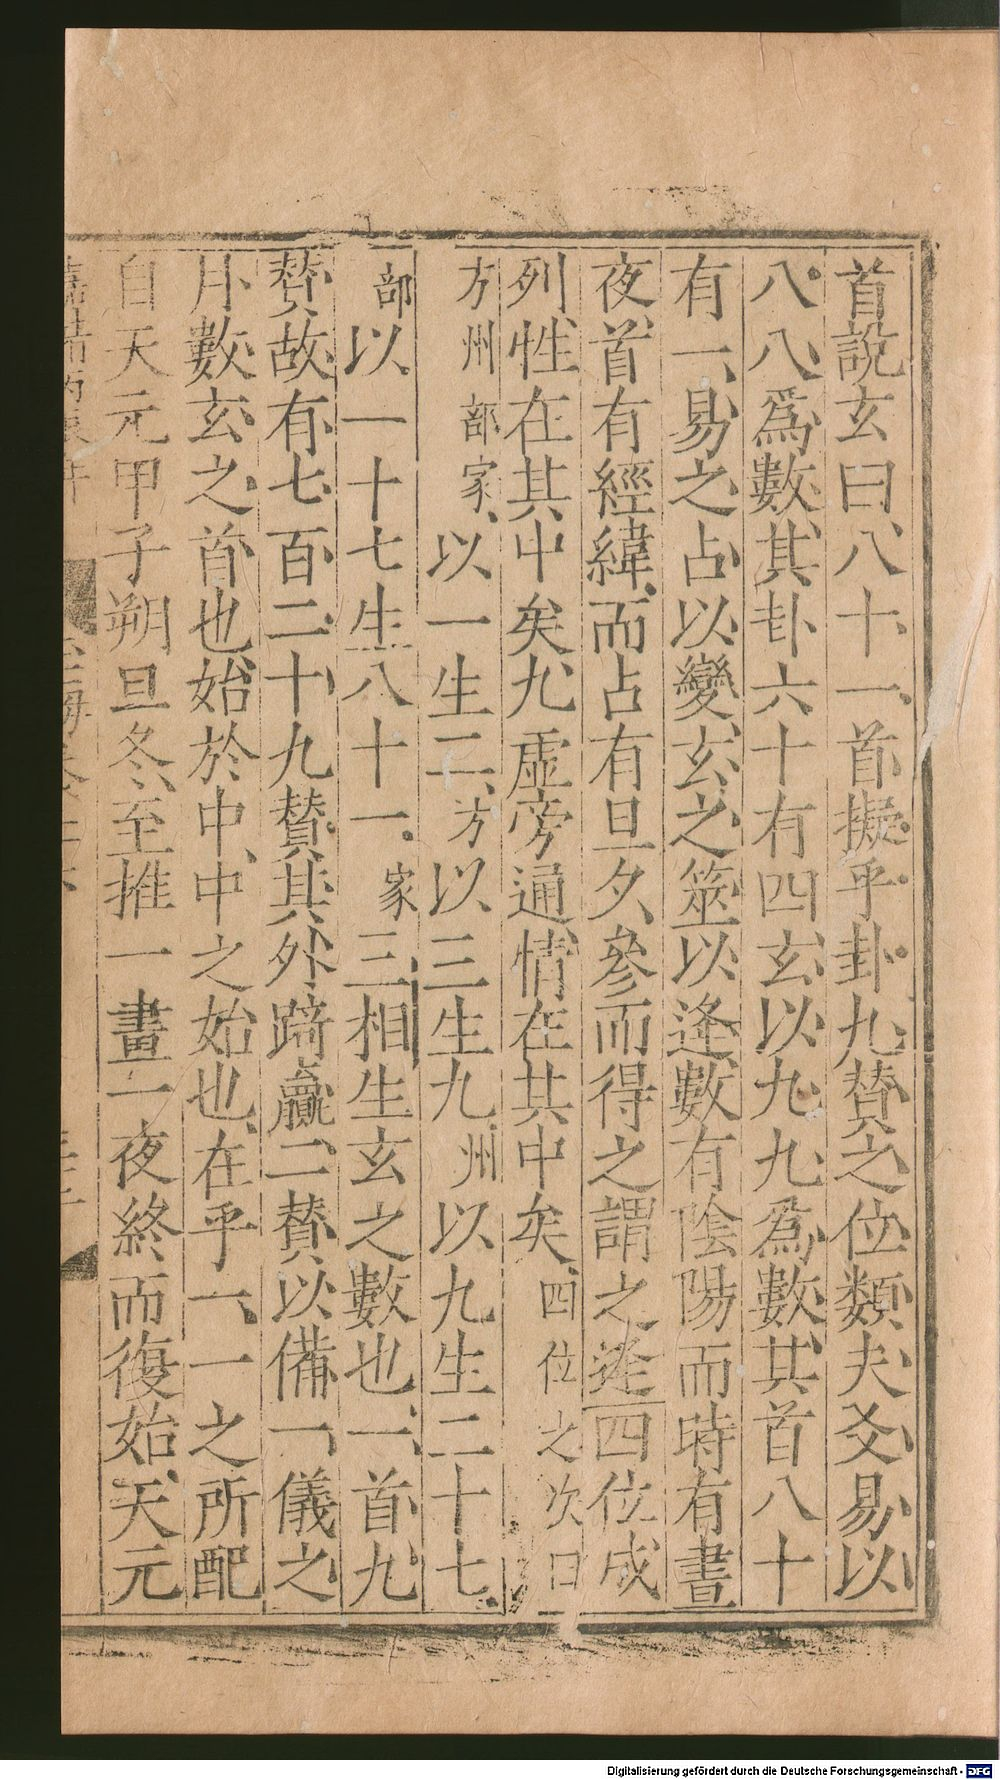 首說玄曰八十一首擬乎卦九賛之位類夫爻易以
八八爲數其卦六十有四玄以九九爲數其首八十
有一易之占以變玄之筮以逢數有陰陽而時有晝
夜首有經緯而占有旦夕參而得之謂之逢四位成
列性在其中矣九虛旁通情在其中矣四位之次曰
方州部家以一生三方以三生九州以九生二十七
部以二十七生八十一家三相生玄之數也一首九
賛故有七百二十九賛其外踦𣄴二賛以備一儀之
月數玄之首也始於中中之始也在乎一一之所配
自天元甲子朔旦冬至推一晝一夜終而復始天元
嘉靖丙辰年
玉海卷
Digitalisierung gefördert durch die Deutsche Forschungsgemeinschaft - DFG